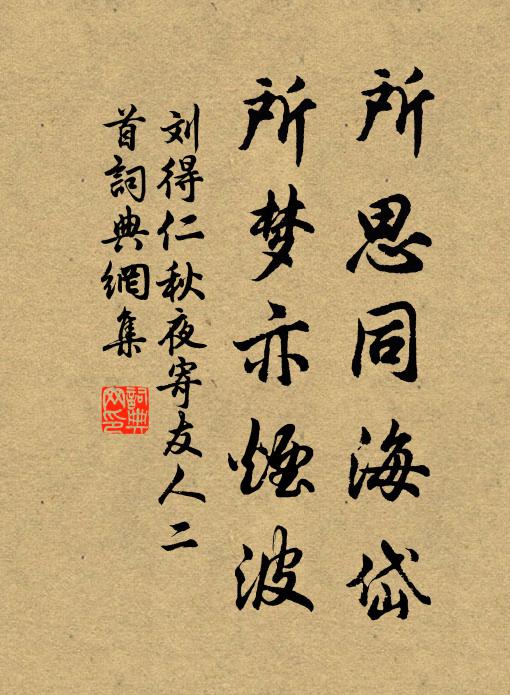 所思同海岱
所梦亦煙波
刘得仁秋夜寄友人二
首詞典網集
詞典
网印